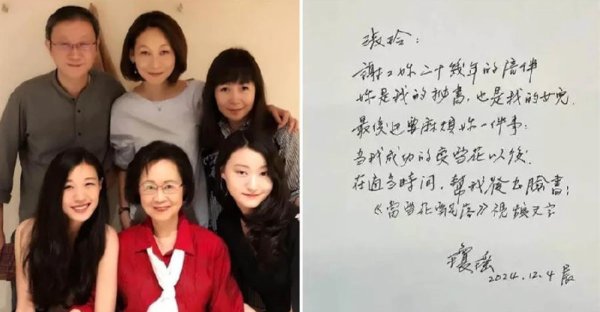 淑玲：
謝謝妳二十幾年的陪伴
妳是我的秘書，也是我的女兒.
最後還要麻煩妳一件事：
當我成功的變雪花以後.
在適當時間，幫我發去臉書：
《當雪花飄落》視頻文字
瓊瑤
2024.12.4晨